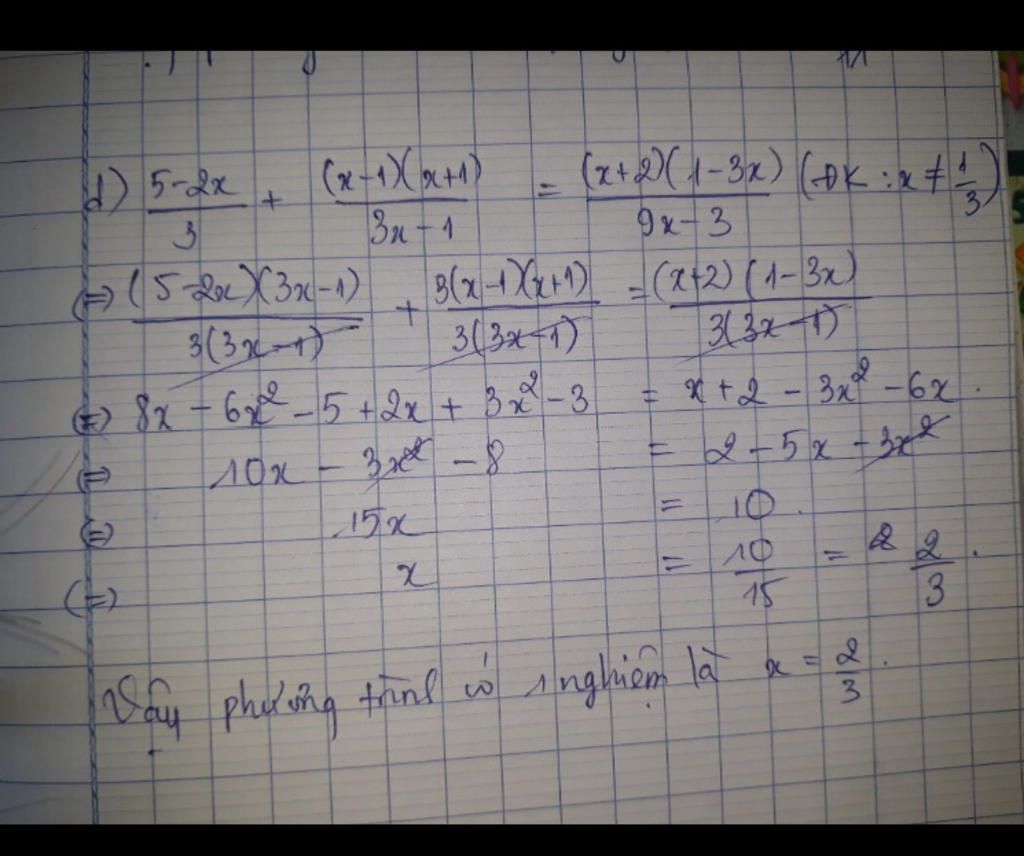 d) (5-2x)/3 + ((x-1)(x+1))/(3x-1) = ((x+2)(1-3x))/(9x-3) (ĐK : x ≠ 1/3)
(=) ((5-2x)(3x-1))/(3(3x-1)) + (3(x-1)(x+1))/(3(3x-1)) = ((x+2)(1-3x))/(3(3x-1))
(=) 8x - 6x² - 5 + 2x + 3x² - 3 = x + 2 - 3x² - 6x .
(=) 10x - 3x² - 8 = 2 - 5x - 3x²
(=) 15x = 10 .
(=) x = 10/15 = 2/3 .
Vậy phương trình có 1 nghiệm là x = 2/3 .